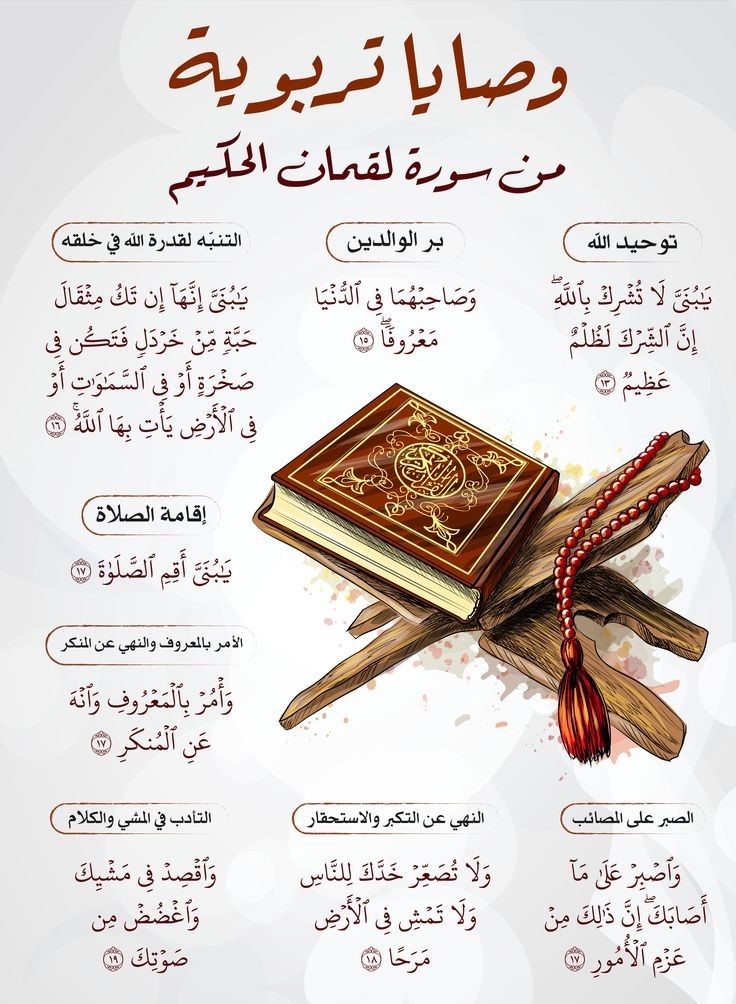 وصايا تربوية
من سورة لقمان الحكيم
توحيد الله
يَٰبُنَيَّ لَا تُشْرِكْ بِٱللَّهِۖ
إِنَّ ٱلشِّرْكَ لَظُلْمٌ
عَظِيمٌ ١٣
بر الوالدين
وَصَاحِبْهُمَا فِي ٱلدُّنْيَا
مَعْرُوفًاۖ ١٥
التنبّه لقدرة الله في خلقه
يَٰبُنَيَّ إِنَّهَآ إِن تَكُ مِثْقَالَ
حَبَّةٍ مِّنْ خَرْدَلٍ فَتَكُن فِي
صَخْرَةٍ أَوْ فِي ٱلسَّمَٰوَٰتِ أَوْ
فِي ٱلْأَرْضِ يَأْتِ بِهَا ٱللَّهُۚ ١٦
إقامة الصلاة
يَٰبُنَيَّ أَقِمِ ٱلصَّلَوٰةَ ١٧
الأمر بالمعروف والنهي عن المنكر
وَأْمُرْ بِٱلْمَعْرُوفِ وَٱنْهَ
عَنِ ٱلْمُنكَرِ ١٧
الصبر على المصائب
وَٱصْبِرْ عَلَىٰ مَآ
أَصَابَكَۖ إِنَّ ذَٰلِكَ مِنْ
عَزْمِ ٱلْأُمُورِ ١٧
النهي عن التكبر والاستحقار
وَلَا تُصَعِّرْ خَدَّكَ لِلنَّاسِ
وَلَا تَمْشِ فِي ٱلْأَرْضِ
مَرَحًا ١٨
التأدب في المشي والكلام
وَٱقْصِدْ فِي مَشْيِكَ
وَٱغْضُضْ مِن
صَوْتِكَ ١٩